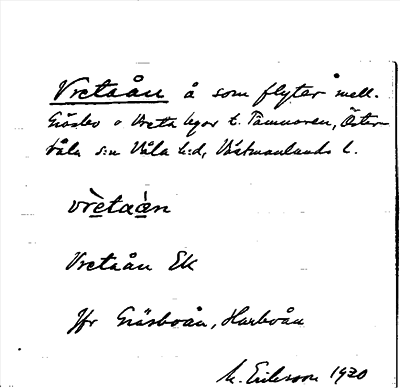 Vretaån å som flyter mell.
Gräsbo o Vreta byar t. Tämnaren, Öster-
våla s:n Våla h:d, Västmanlands l.
vrètaàn
Vretaån EK
Jfr Gräsboån, Harboån
M. Eriksson 1920